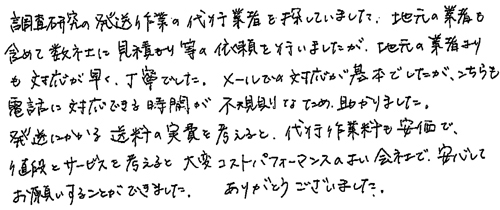 調査研究の発送作業の代行業者を探していました。地元の業者も
含めて数社に見積もり等の依頼を行いましたが、地元の業者より
も対応が早く、丁寧でした。メールでの対応が基本でしたが、こちらも
電話に対応できる時間が不規則なため、助かりました。
発送にかかる送料の実費を考えると、代行作業料も安価で、
値段とサービスを考えると大変コストパフォーマンスのよい会社で、安心して
お願いすることができました。 ありがとうございました。